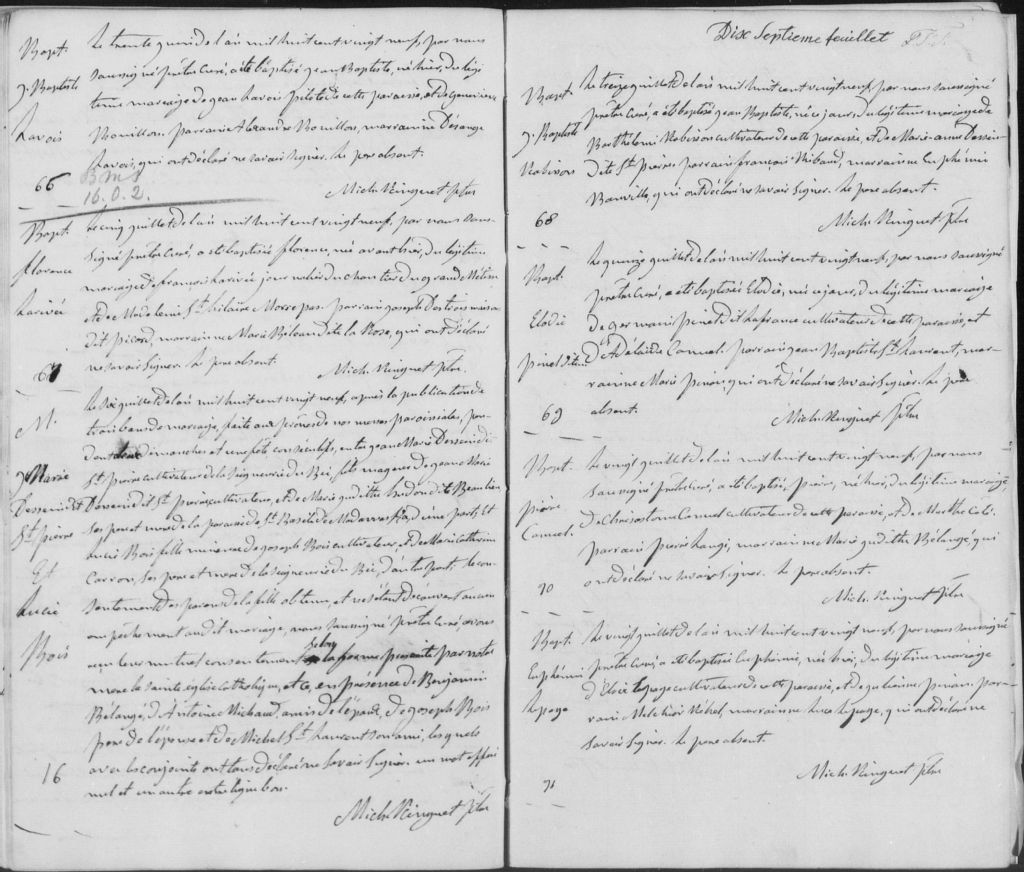 Bapt.
J. Baptiste
Lavois
66
B M S
16. 0. 2.
Le trente juin de l'an mil huit cent vingt neuf, par nous
soussigné prêtre Curé, a été baptisé Jean Baptiste, né hier, du légi
time mariage de Jean Lavois pilote de cette paroisse, et de Geneviève
Bouillon. parrain Alexandre Bouillon, marrainne Désange
Lavois, qui ont déclaré ne savoir signer. Le père absent.
Mich. Ringuet ptre
Bapt.
florence
Larivée
67
Le cinq juillet de l'an mil huit cent vingt neuf, par nous sous-
signé prêtre Curé, a été baptisée florence, née avant hier, du légitime
mariage de françois Larivée journalier du chantier du grand Métis
et de Madeleine St. hilaire Morre pas. parrain joseph
dit picard, marrainne Marie Béland de la Rose, qui ont déclaré
ne savoir signer. Le père absent.
Mich. Ringuet ptre.
M.
J. Marie
Desseindit
St. pierre
Et
Lucie
Bois
16
Le six juillet de l'an mil huit cent vingt neuf, après la publication de
trois bans de mariage, faite aux prônes de nos messes paroissiales, pen-
dant deux dimanches et une fête consécutifs, entre jean Marie Dessein dit
St. pierre cultivateur de la seigneurie du Bic, fils majeur de jean Marie
Dessein dit St. pierre cultivateur, et de Marie judithe hudon dite Beaulieu
ses père et mère de la paroisse de St. Basile de Madawaska, d'une part; Et
Lucie Bois fille mineure de joseph Bois cultivateur et de Marie Catherine
Carron, ses père et mère de la seigneurie du Bic, d'autre part; le con-
sentement des parens de la fille obtenu, et ne s'étant découvert aucun
empêchement audit mariage, nous soussigné prêtre Curé, avons
reçu leur mutuel consentement selon la forme prescrite par notre
mère la sainte église Catholique, et ce, en présence de Benjamin
Bélangé, d'Antoine Michaud, amis de l'époux, de joseph Bois
père de l'épouse et de Michel St. Laurent son ami, lesquels
avec les conjoints ont tous déclaré ne savoir signer. un mot effacé
nul et un autre entreligne bon.
Mich. Ringuet ptre
Dixe Septieme feuillet
Bapt.
J. Baptiste
Robisson
68
Le treize juillet de l'an mil huit cent vingt neuf par nous soussigné
prêtre Curé, a été baptisé jean Baptiste, né ce jour, du légitime mariage de
Barthelemi Robisson cultivateur de cette paroisse, et de Marie-anne Dessein
dite St. pierre. parrain françois Thibaud, marrainne Euphémie
Banville, qui ont déclaré ne savoir signer. Le père absent.
Mich. Ringuet ptre
Bapt.
Elodie
pinel
69
Le quinze juillet de l'an mil huit cent vingt neuf, par nous soussigné
prêtre Curé, a été baptisée Elodie, née ce jour, du légitime mariage
de germain pinel dit Lafrance cultivateur de cette paroisse, et
d'Adelaide Canuel. parrain jean Baptiste St. Laurent, mar-
rainne Marie pineau, qui ont déclaré ne savoir signer. Le père
absent.
Mich. Ringuet ptre
Bapt.
pierre
Canuel.
70
Le vingt juillet de l'an mil huit cent vingt neuf, par nous
soussigné prêtre Curé, a été baptisé, pierre, né hier, du légitime mariage
de Chrisostome Canuel cultivateur de cette paroisse, et de Marthe Coté.
parrain pierre Langi, marrainne Marie judithe Bélangé, qui
ont déclaré ne savoir signer. Le père absent.
Mich. Ringuet ptre
Bapt.
Euphémie
Lepage
71
Le vingt juillet de l'an mil huit cent vingt neuf, par nous soussigné
prêtre Curé, a été baptisée Euphémie, née hier, du légitime mariage
d'Eloi Lepage cultivateur de cette paroisse, et de julienne pineau. par-
rain Melchior Rehel, marrainne Luce Lepage, qui ont déclaré ne
savoir signer. Le père absent.
Mich. Ringuet ptre